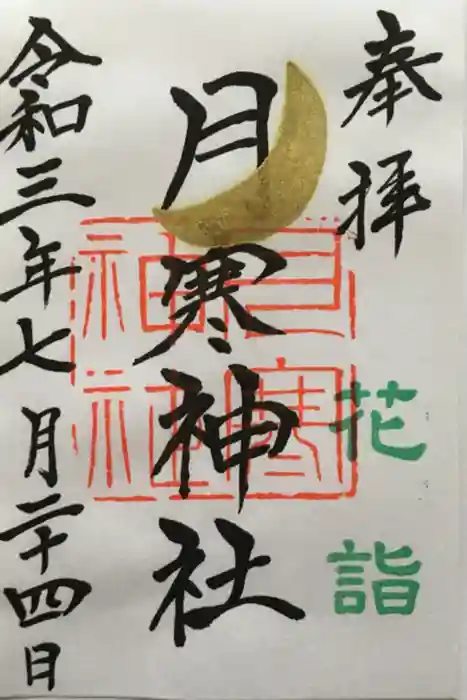 奉拝
花詣
月寒神社
月寒神社
令和三年七月二十四日